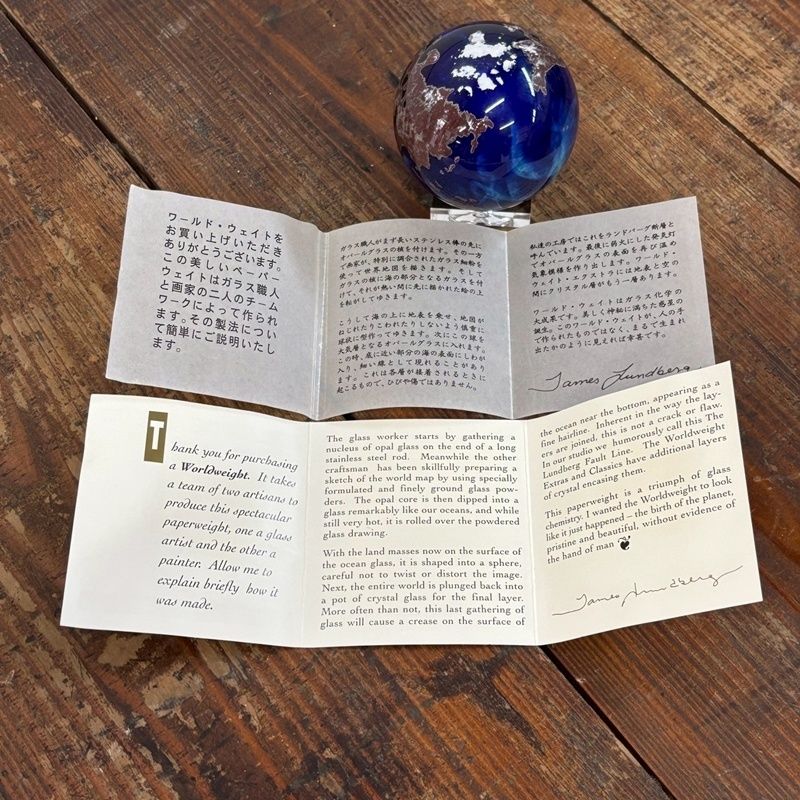 ワールド・ウェイトを
お買い上げいただき
ありがとうございます。
この美しいペーパー
ウェイトはガラス職人
と画家の二人のチーム
ワークによって作られ
ます。その製法につい
て簡単にご説明いたし
ます。
ガラス職人がまず長いステンレス棒の先に
オパールグラスの核を付けます。その一方
で画家が、特別に調合されたガラス細粉を
使って世界地図を描きます。そして
ガラスの核に海の部分となるガラスを付
けて、それが熱い間に先に描かれた絵の上
を転がしてゆきます。
こうして海の上に地表を乗せ、地図が
ねじれたりこわれたりしないよう慎重に
球状に型作ってゆきます。次にこの球を
大気層となるオパールグラスに入れます。
この時、底に近い部分の海の表面にしわが
入り、細い線として現れることがあり
ます。これは各層が接着されるときに
起こるもので、ひびや傷ではありません。
私達の工房ではこれをランドバーグ断層と
呼んでいます。最後に弱火にした発気灯
でオパールグラスの表面を再び温め
気象模様を作り出します。ワールド・
ウェイト・エクストラには地表と空の
間にクリスタル層がもう一層あります。
ワールド・ウェイトはガラス化学の
大成果です。美しく神秘に満ちた惑星の
誕生。このワールド・ウェイトが、人の手
で作られたものではなく、まるで生まれ
出たかのように見えれば幸甚です。
James Lundberg
Thank you for purchasing
a Worldweight. It takes
a team of two artisans to
produce this spectacular
paperweight, one a glass
artist and the other a
painter. Allow me to
explain briefly how it
was made.
The glass worker starts by gathering a
nucleus of opal glass on the end of a long
stainless steel rod. Meanwhile the other
craftsman has been skillfully preparing a
sketch of the world map by using specially
formulated and finely ground glass pow-
ders. The opal core is then dipped into a
glass remarkably like our oceans, and while
still very hot, it is rolled over the powdered
glass drawing.
With the land masses now on the surface of
the ocean glass, it is shaped into a sphere,
careful not to twist or distort the image.
Next, the entire world is plunged back into
a pot of crystal glass for the final layer.
More often than not, this last gathering of
glass will cause a crease on the surface of
the ocean near the bottom, appearing as a
fine hairline. Inherent in the way the lay-
ers are joined, this is not a crack or flaw.
In our studio we humorously call this The
Lundberg Fault Line. The Worldweight
Extras and Classics have additional layers
of crystal encasing them.
This paperweight is a triumph of glass
chemistry. I wanted the Worldweight to look
like it just happened – the birth of the planet,
pristine and beautiful, without evidence of
the hand of man
James Lundberg